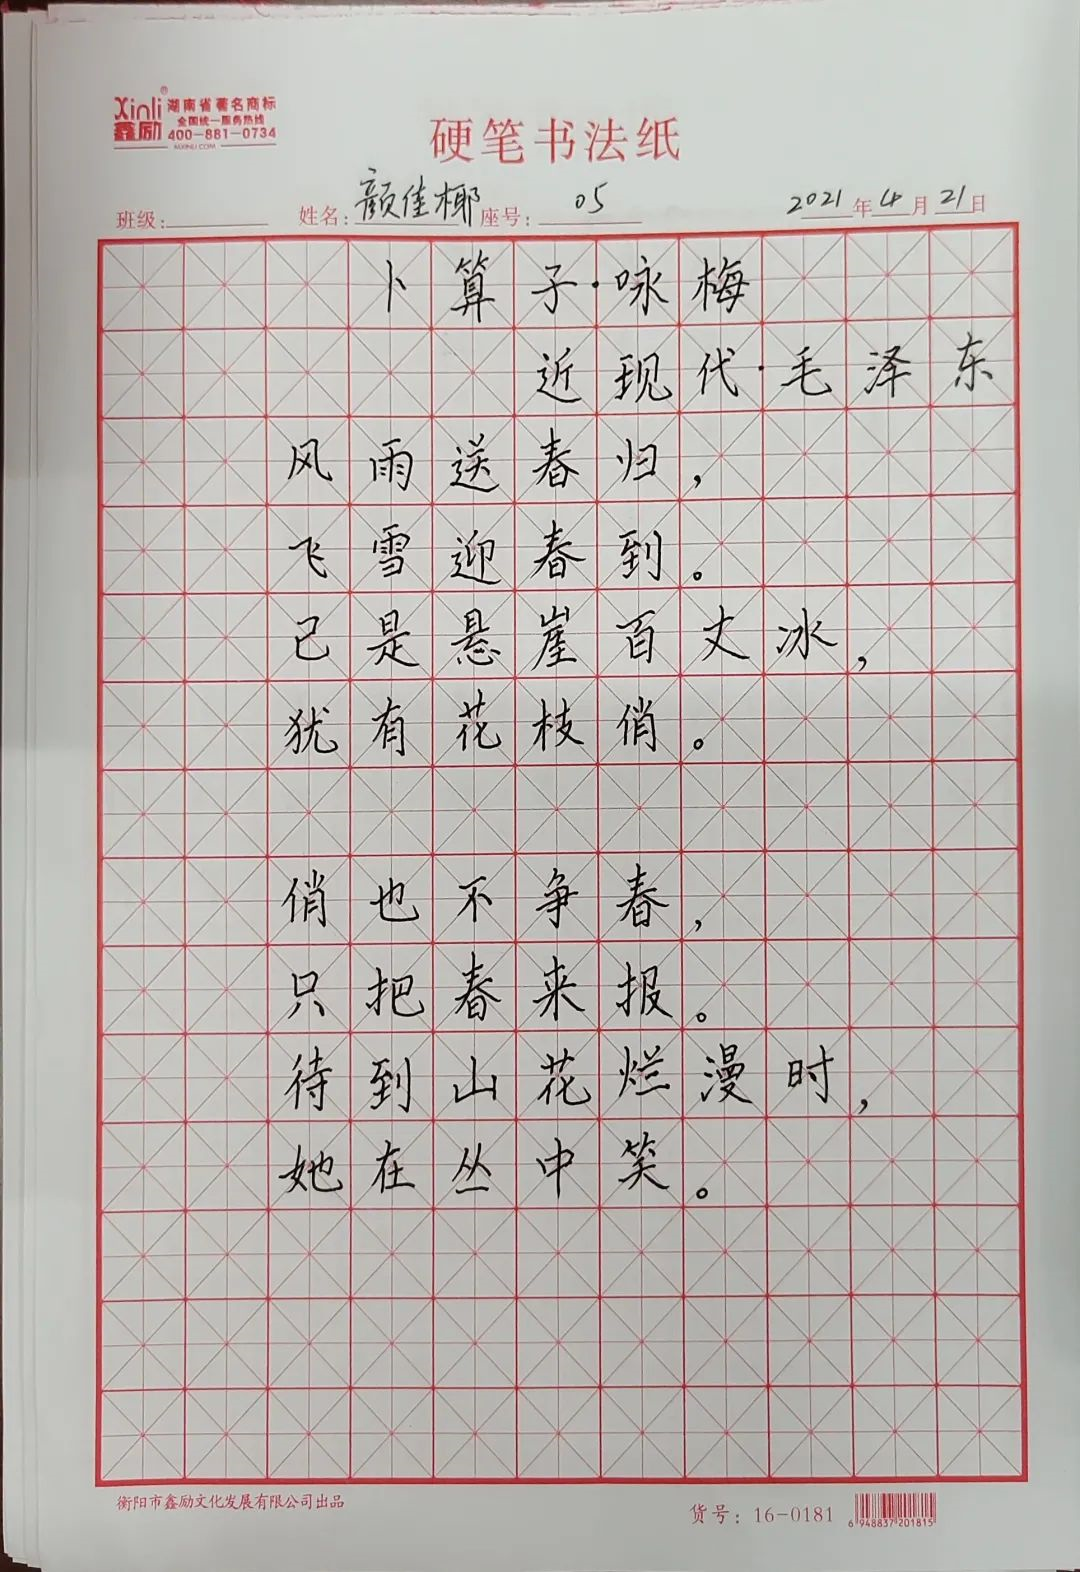 Xinli® 湖南省著名商标
鑫励 全国统一服务热线
400-881-0734
MXINLI.COM
硬笔书法纸
班级: 姓名: 颜佳椰 座号: 05 2021年4月21日
卜算子·咏梅
近现代·毛泽东
风雨送春归,
飞雪迎春到。
已是悬崖百丈冰,
犹有花枝俏。
俏也不争春,
只把春来报。
待到山花烂漫时,
她在丛中笑。
衡阳市鑫励文化发展有限公司出品
货号: 16-0181
6 948837 201815